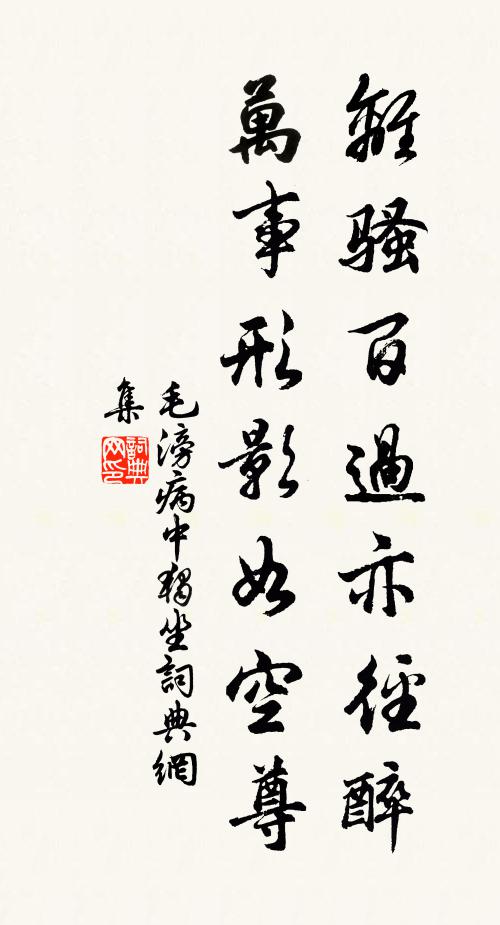 離騷百過亦徑醉
萬事形影如空尊
毛滂病中獨坐詞典網
集
詞典
网印